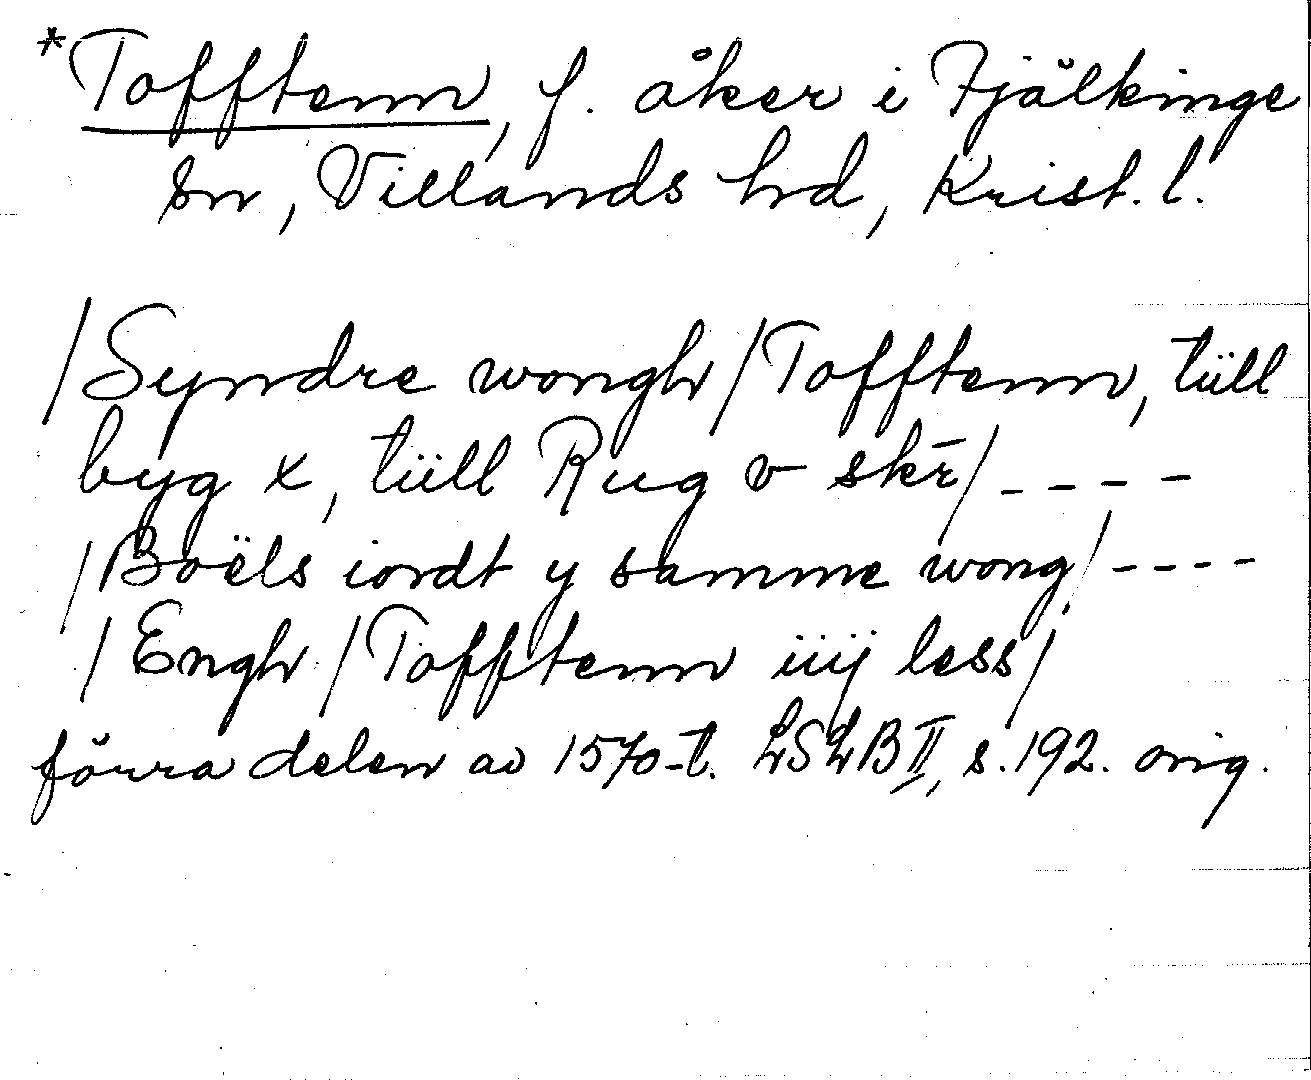 *Tofftenn, f. åker i Fjälkinge
sn, Villands hd, Krist. l.
/Syndre wongh/Tofftenn, tüll
byg x, tüll Rug v skr̄/ _ - - -
/Boëls iordt y samme wong/ - - - -
/Engh/Tofftenn iiij less/
förra delen av 1570-t. LSLB II, s. 192. orig.